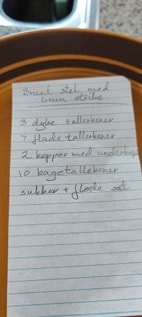 Brunt stel med
brun streke
3 dybe tallerkener
7 flade tallerkener
2 kopper med underkop
10 kagetallekener
sukker + fløde sæt